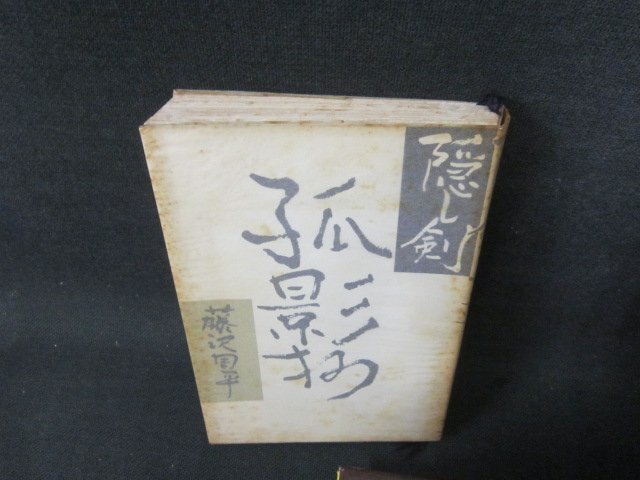 隠し剣
孤影抄
藤沢周平